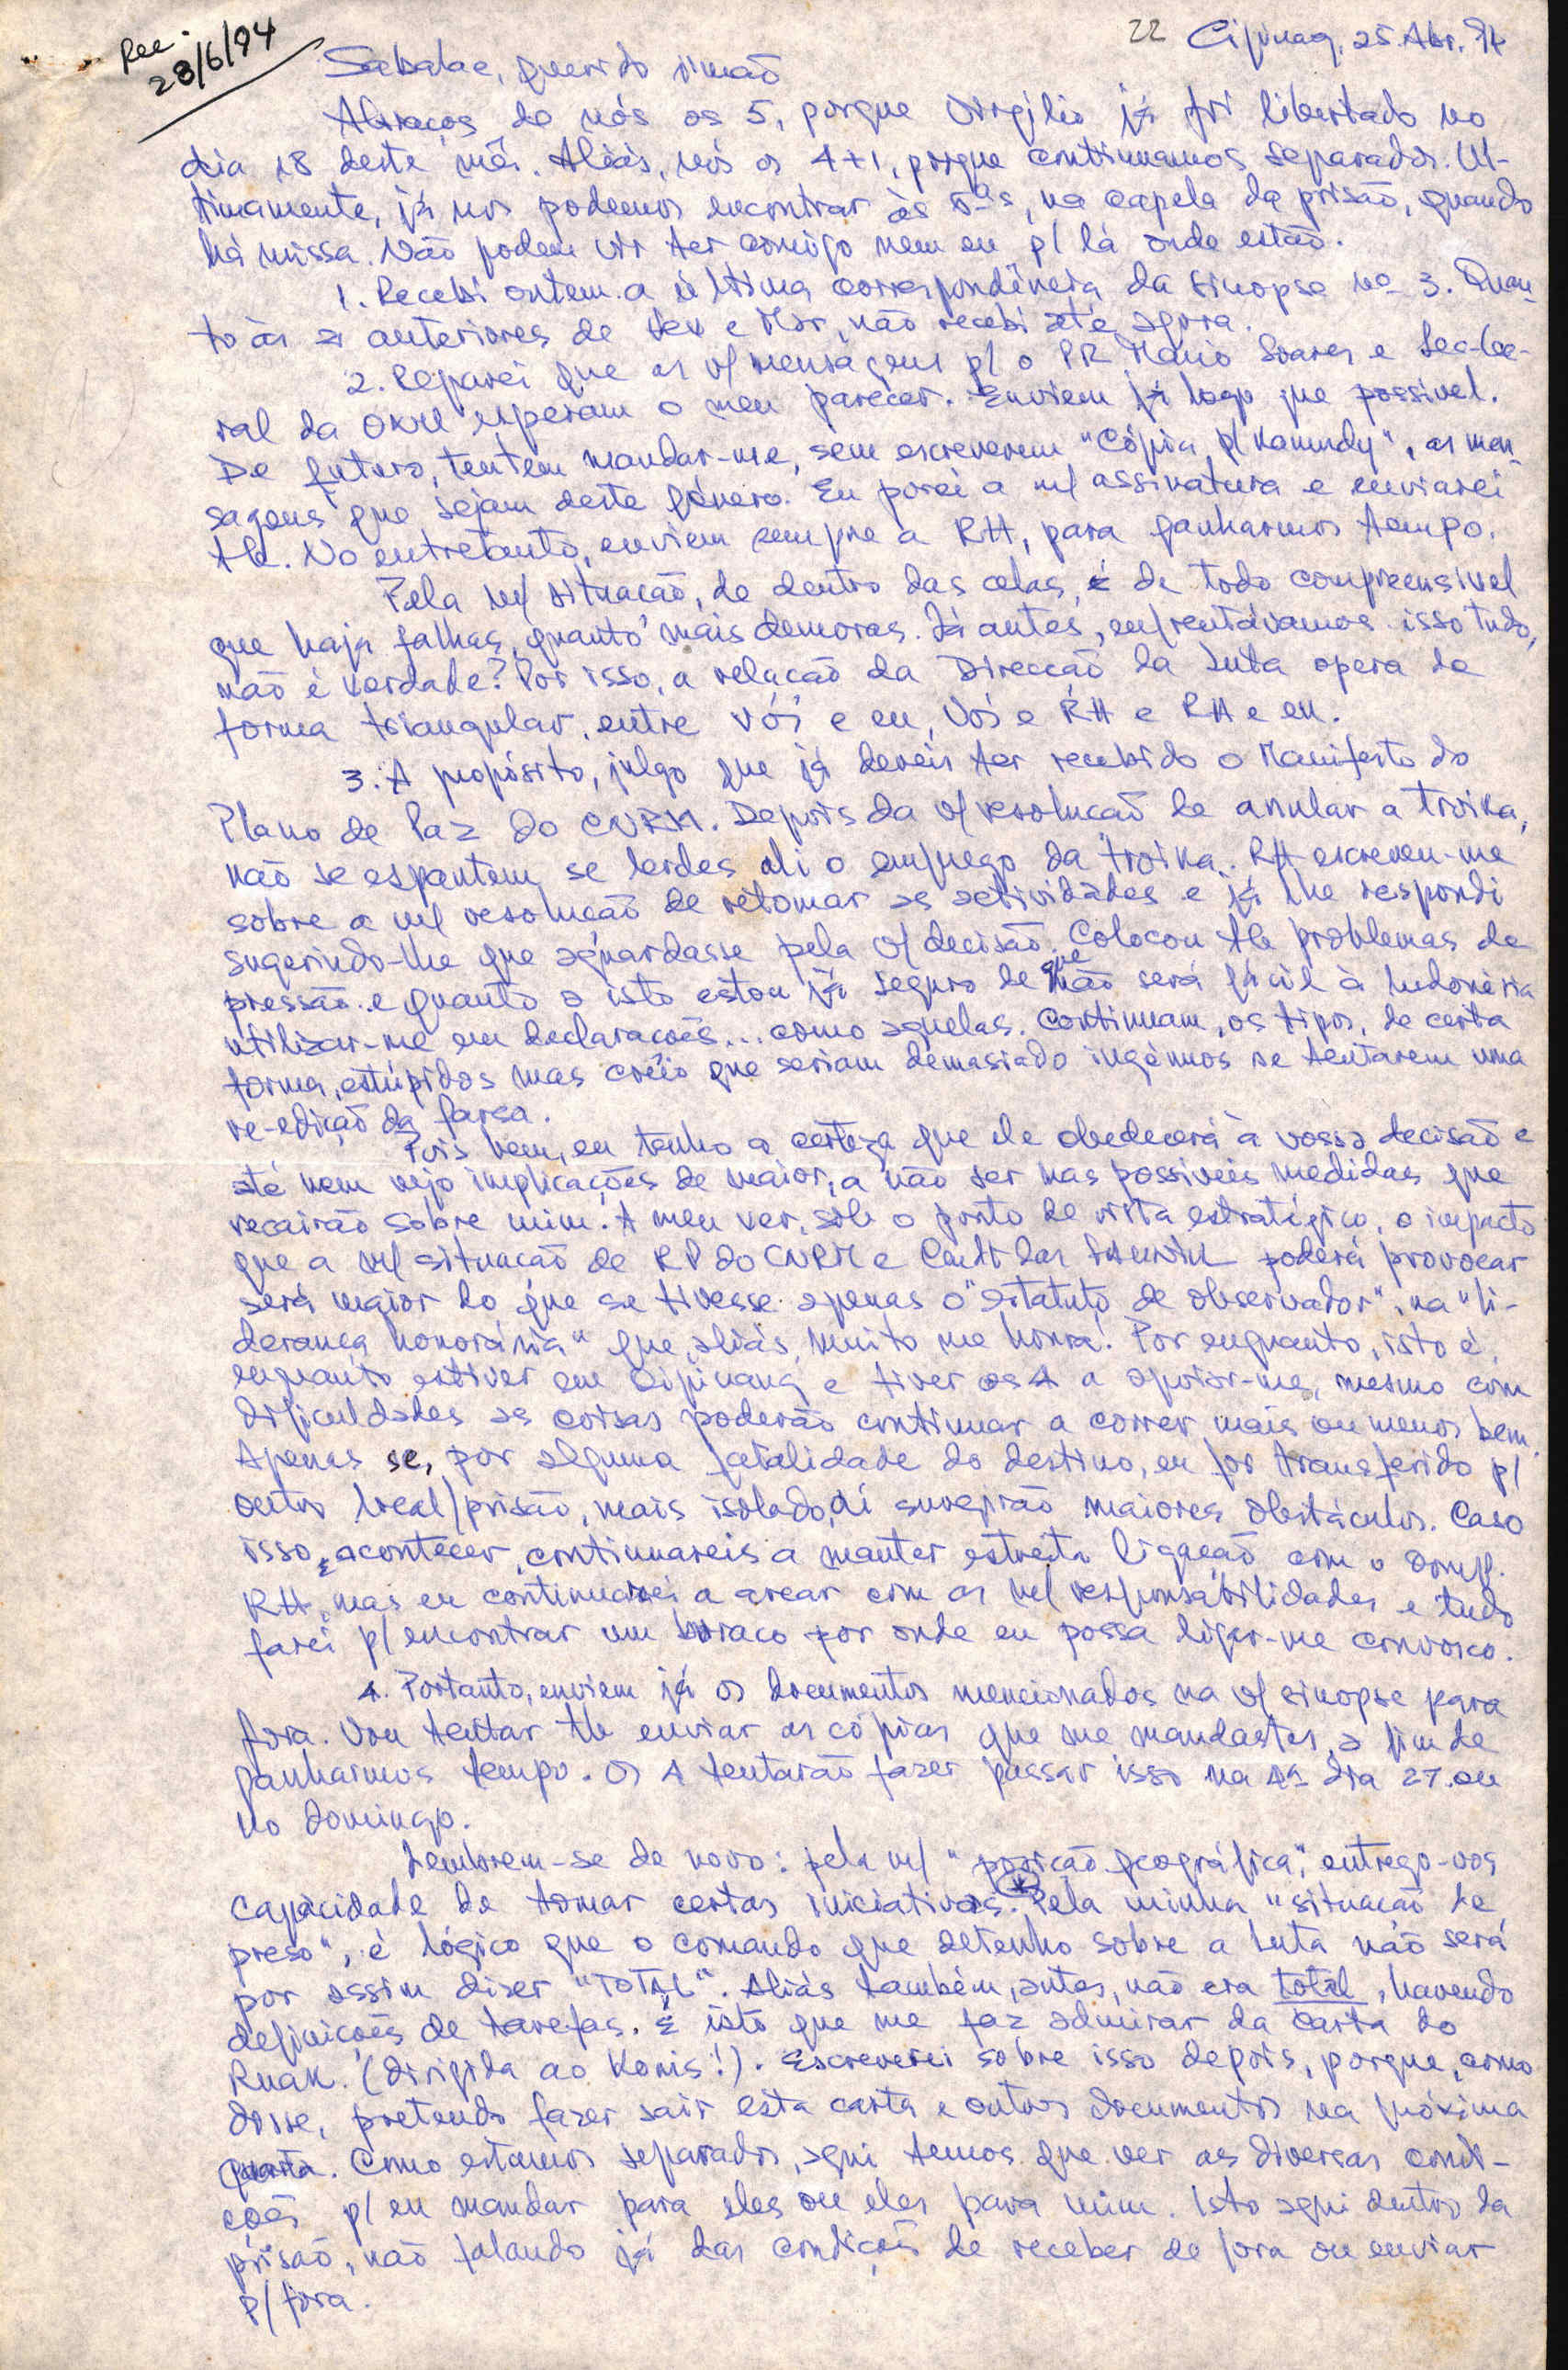 Rec.
28/6/94
22 Cipinang, 25.Abr.94
Sabalae, querido irmão
Abraços de nós os 5, porque Virgílio já foi libertado no
dia 18 deste mês. Aliás, nós os 4+1, porque continuamos separados. Ul-
timamente, já nos podemos encontrar às 5ªs, na capela da prisão, quando
há missa. Não podem vir ter comigo nem eu p/ lá onde estão.
1. Recebi ontem a última correspondência da sinopse nº 3. Quan-
to às 2 anteriores de Fev e Mar, não recebi até agora.
2. Reparei que as v/ mensagens p/ o PR Mário Soares e Sec-Ge-
ral da ONU esperam o meu parecer. Enviem já logo que possível.
De futuro, tentem mandar-me, sem escreverem "Cópia p/ Kamudy", as men-
sagens que sejam deste género. Eu porei a m/ assinatura e enviarei
tb. No entretanto, enviem sempre a RH, para ganharmos tempo.
Pela m/ situação, de dentro das celas, é de todo compreensível
que haja falhas, quanto mais demoras. Já antes, enfrentávamos isso tudo,
não é verdade? Por isso, a relação da Direcção da Luta opera de
forma triangular, entre vós e eu, Vós e RH e RH e eu.
3. A propósito, julgo que já deveis ter recebido o Manifesto do
Plano de Paz do CNRM. Depois da v/ resolução de anular a troika,
não se espantem se lerdes ali o emprego da "troika". RH escreveu-me
sobre a m/ resolução de retomar as actividades e já lhe respondi
sugerindo-lhe que aguardasse pela v/ decisão. Colocou tb problemas de
pressão e quanto a isto estou já seguro de que não será fácil à Indonésia
utilizar-me em declarações... como aquelas. Continuam, os tipos, de certa
forma, estúpidos mas creio que seriam demasiado ingénuos se tentarem uma
re-edição da farsa.
Pois bem, eu tenho a certeza que ele obedecerá à vossa decisão e
até nem vejo implicações de maior, a não ser nas possíveis medidas que
recairão sobre mim. A meu ver, sob o ponto de vista estratégico, o impacto
que a m/ situação de RP do CNRM e Cmdt das FALINTIL poderá provocar
será maior do que se tivesse apenas o "estatuto de observador", na "li-
derança honorária" que, aliás, muito me honra! Por enquanto, isto é,
enquanto estiver em Cipinang e tiver os 4 a apoiar-me, mesmo com
dificuldades as coisas poderão continuar a correr mais ou menos bem.
Apenas se, por alguma fatalidade do destino, eu for transferido p/
outro local/prisão, mais isolado, aí surgirão maiores obstáculos. Caso
isso acontecer, continuareis a manter estreita ligação com o comp.
RH, mas eu continuarei a arcar com as m/ responsabilidades e tudo
farei p/ encontrar um buraco por onde eu possa ligar-me convosco.
4. Portanto, enviem já os documentos mencionados na v/ sinopse para
fora. Vou tentar tb enviar as cópias que me mandastes, a fim de
ganharmos tempo. Os 4 tentarão fazer passar isso na 4ª dia 27 ou
no domingo.
Lembrem-se de novo: pela m/ "posição geográfica", entrego-vos
capacidade de tomar certas iniciativas. Pela minha "situação de
preso", é lógico que o comando que detenho sobre a Luta não será
por assim dizer "TOTAL". Aliás também, antes, não era total, havendo
definições de tarefas. É isto que me faz admirar da carta do
Ruak. (dirigida ao Konis!). Escreverei sobre isso depois, porque, como
disse, pretendo fazer sair esta carta e outros documentos na próxima
quarta. Como estamos separados, aqui temos que ver as diversas condi-
ções p/ eu mandar para eles ou eles para mim. Isto aqui dentro da
prisão, não falando já das condições de receber de fora ou enviar
p/ fora.